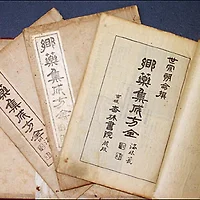 世宗朝命撰
鄉藥集成方全
杏林書院
鄉藥集成方全
鄉藥集成方